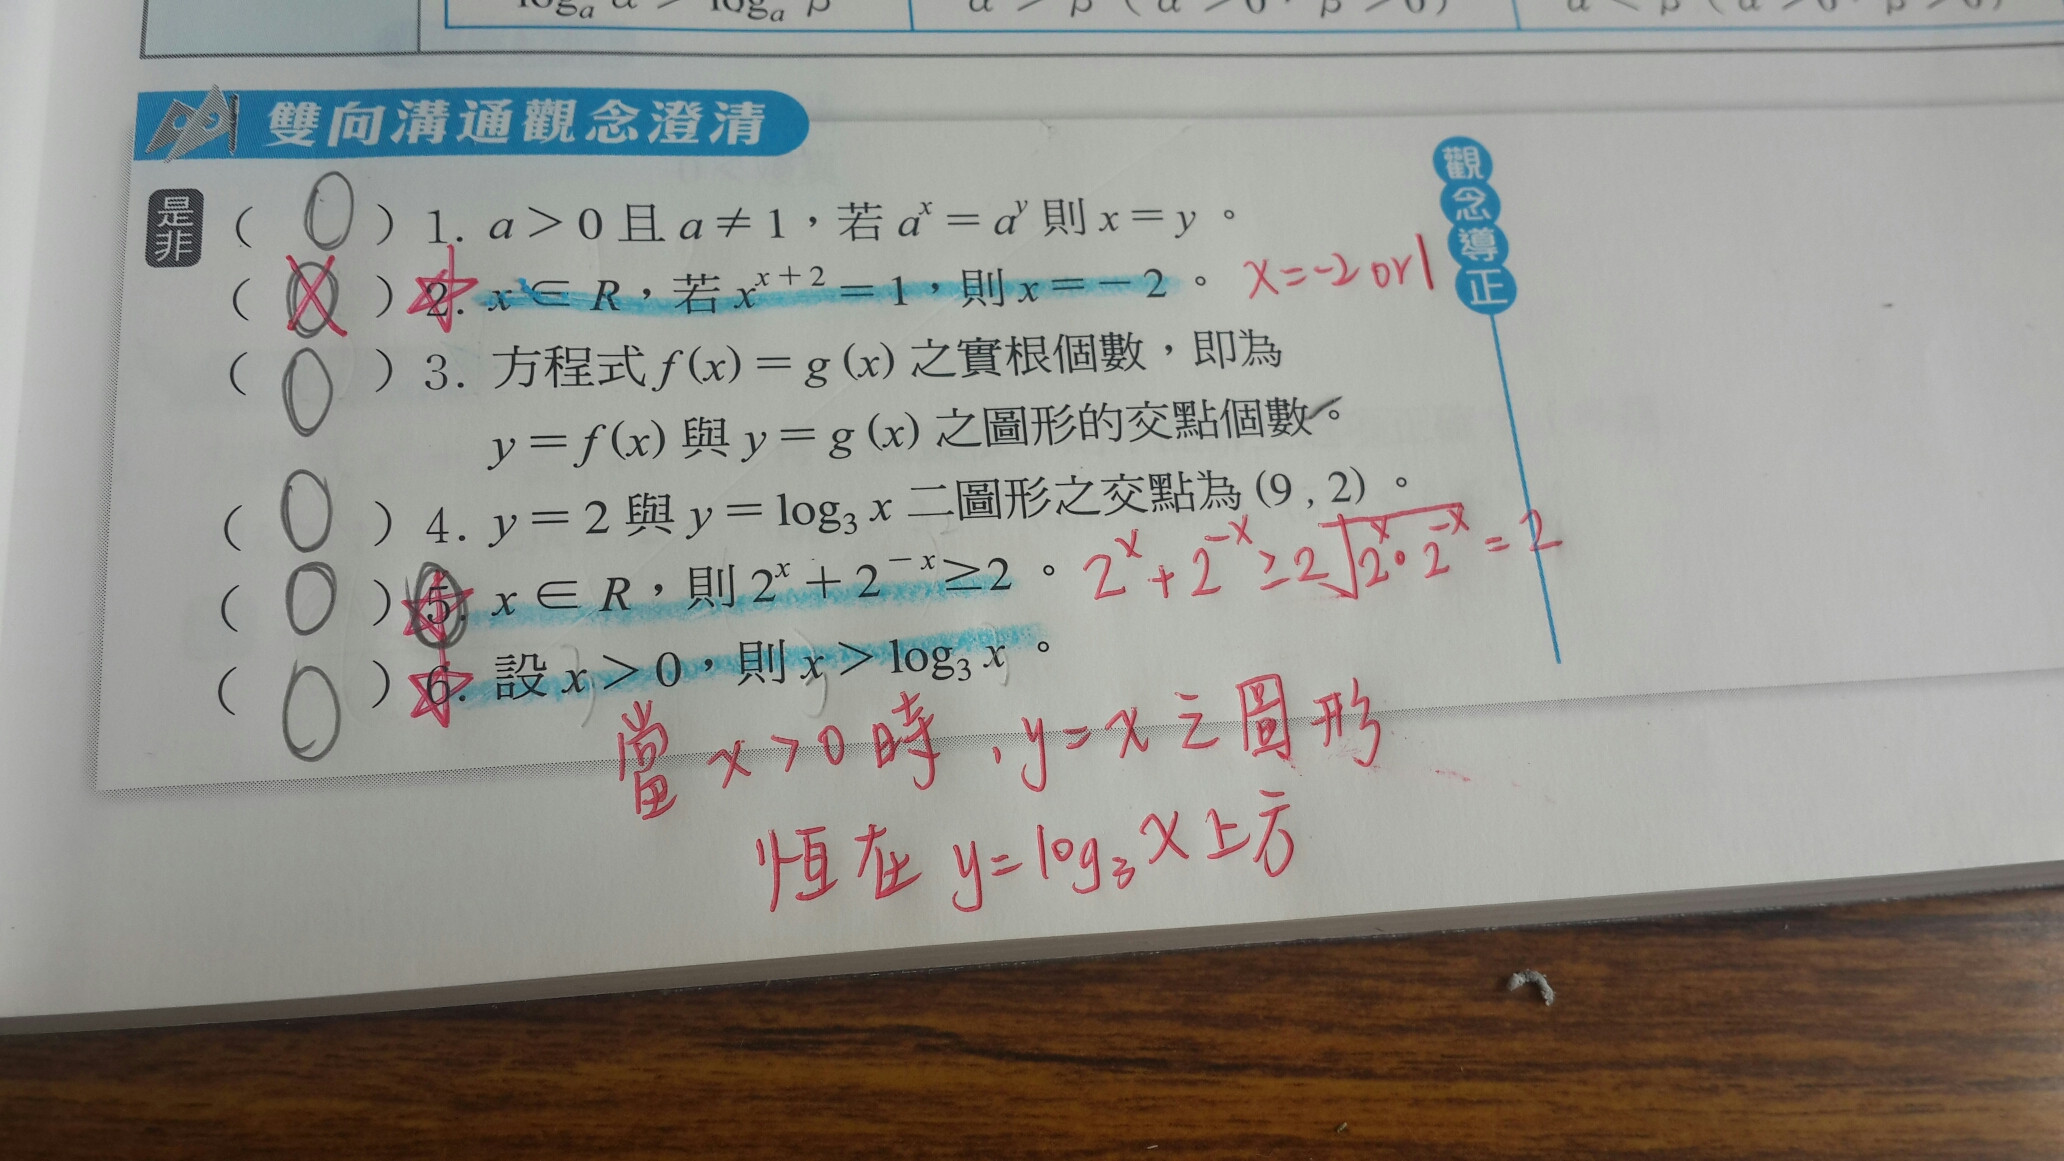 雙向溝通觀念澄清
觀念導正
是非
( O ) 1. a > 0 且 a ≠ 1,若 a^x = a^y 則 x = y 。
( X ) 2. x ∈ R,若 x^{x+2} = 1,則 x = −2 。 x = -2 or 1
( O ) 3. 方程式 f(x) = g(x) 之實根個數,即為
y = f(x) 與 y = g(x) 之圖形的交點個數。
( O ) 4. y = 2 與 y = log₃ x 二圖形之交點為 (9 , 2) 。
( O ) 5. x ∈ R,則 2^x + 2^{−x} ≥ 2 。 2^x + 2^{-x} ≥ 2√(2^x · 2^{-x}) = 2
( O ) 6. 設 x > 0,則 x > log₃ x 。
當 x > 0 時,y = x 之圖形
恒在 y = log₃ x 上方